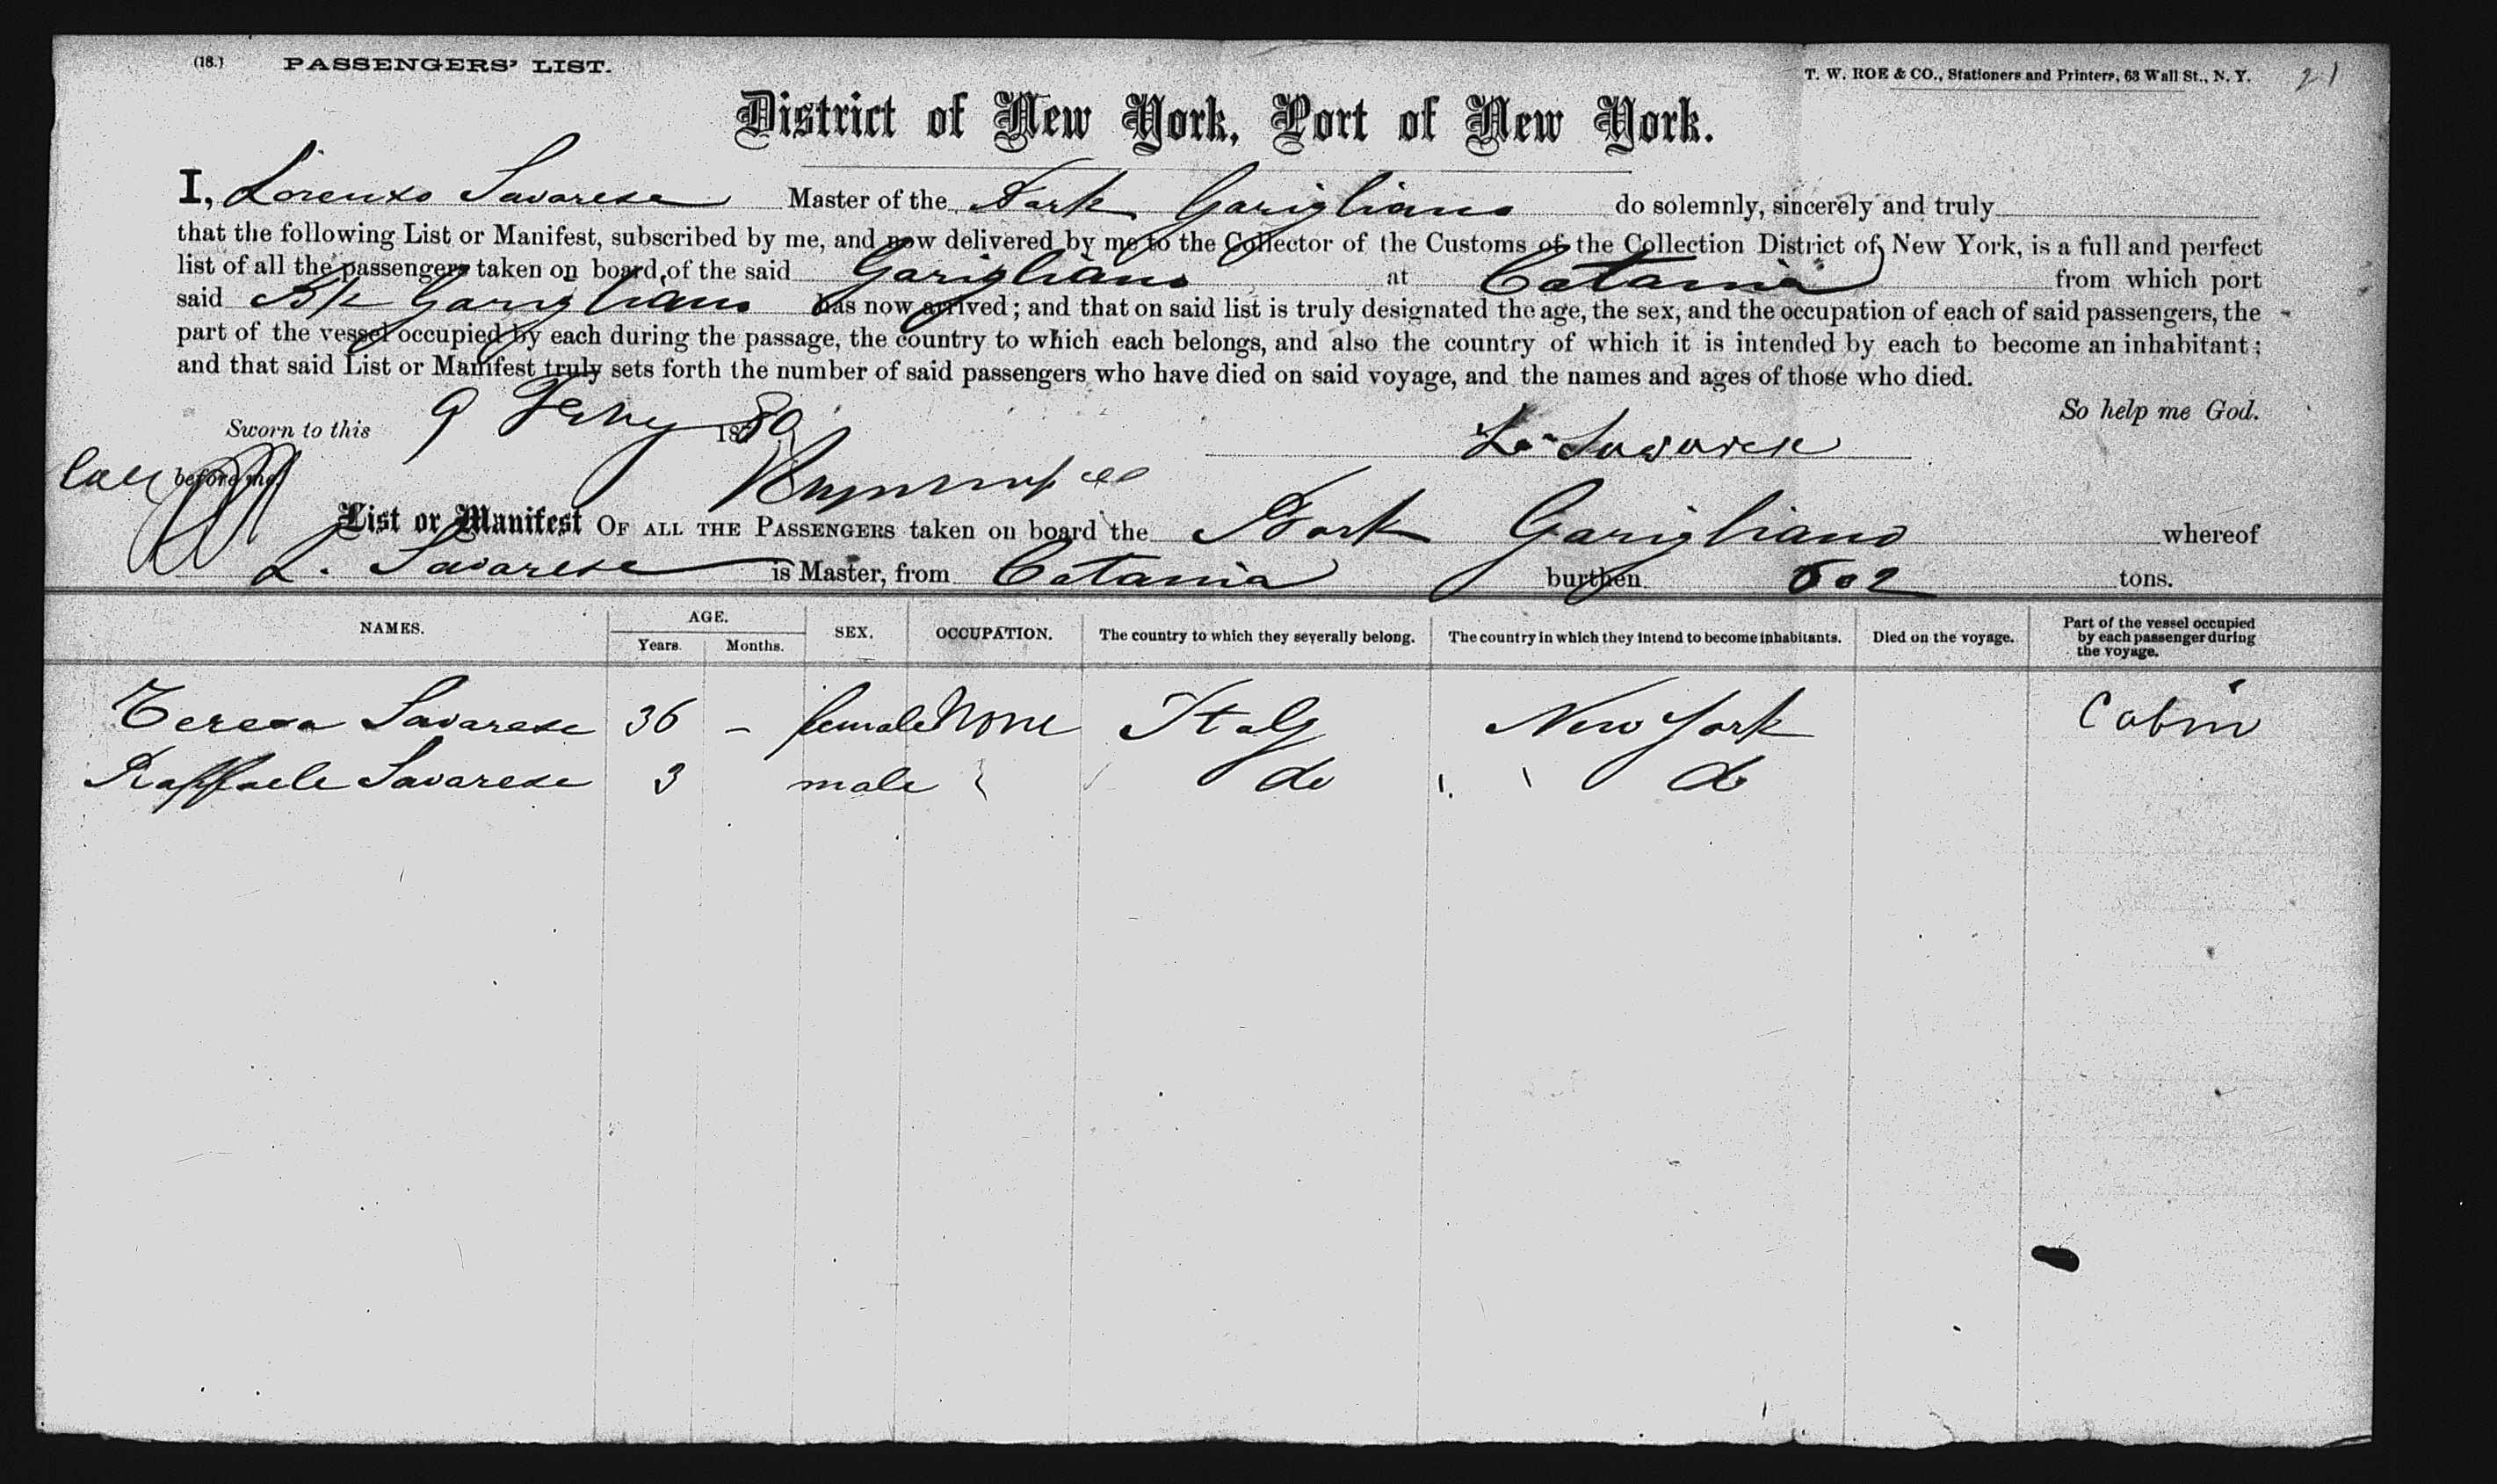 (18.) PASSENGERS' LIST.
T. W. ROE & CO., Stationers and Printers, 63 Wall St., N. Y. 21
District of New York, Port of New York.
I, Lorenzo Savarese Master of the Bark Garigliano do solemnly, sincerely and truly
that the following List or Manifest, subscribed by me, and now delivered by me to the Collector of the Customs of the Collection District of New York, is a full and perfect
list of all the passengers taken on board of the said Garigliano at Catania from which port
said Bk Garigliano has now arrived; and that on said list is truly designated the age, the sex, and the occupation of each of said passengers, the
part of the vessel occupied by each during the passage, the country to which each belongs, and also the country of which it is intended by each to become an inhabitant;
and that said List or Manifest truly sets forth the number of said passengers who have died on said voyage, and the names and ages of those who died.
So help me God.
Sworn to this 9 Feby 1880
L. Savarese
before me,
List or Manifest OF ALL THE PASSENGERS taken on board the Bark Garigliano whereof
L. Savarese is Master, from Catania burthen 602 tons.
NAMES. AGE. Years. Months. SEX. OCCUPATION. The country to which they severally belong. The country in which they intend to become inhabitants. Died on the voyage. Part of the vessel occupied by each passenger during the voyage.
Teresa Savarese 36 - female None Italy New York Cabin
Raffaele Savarese 3 male do do